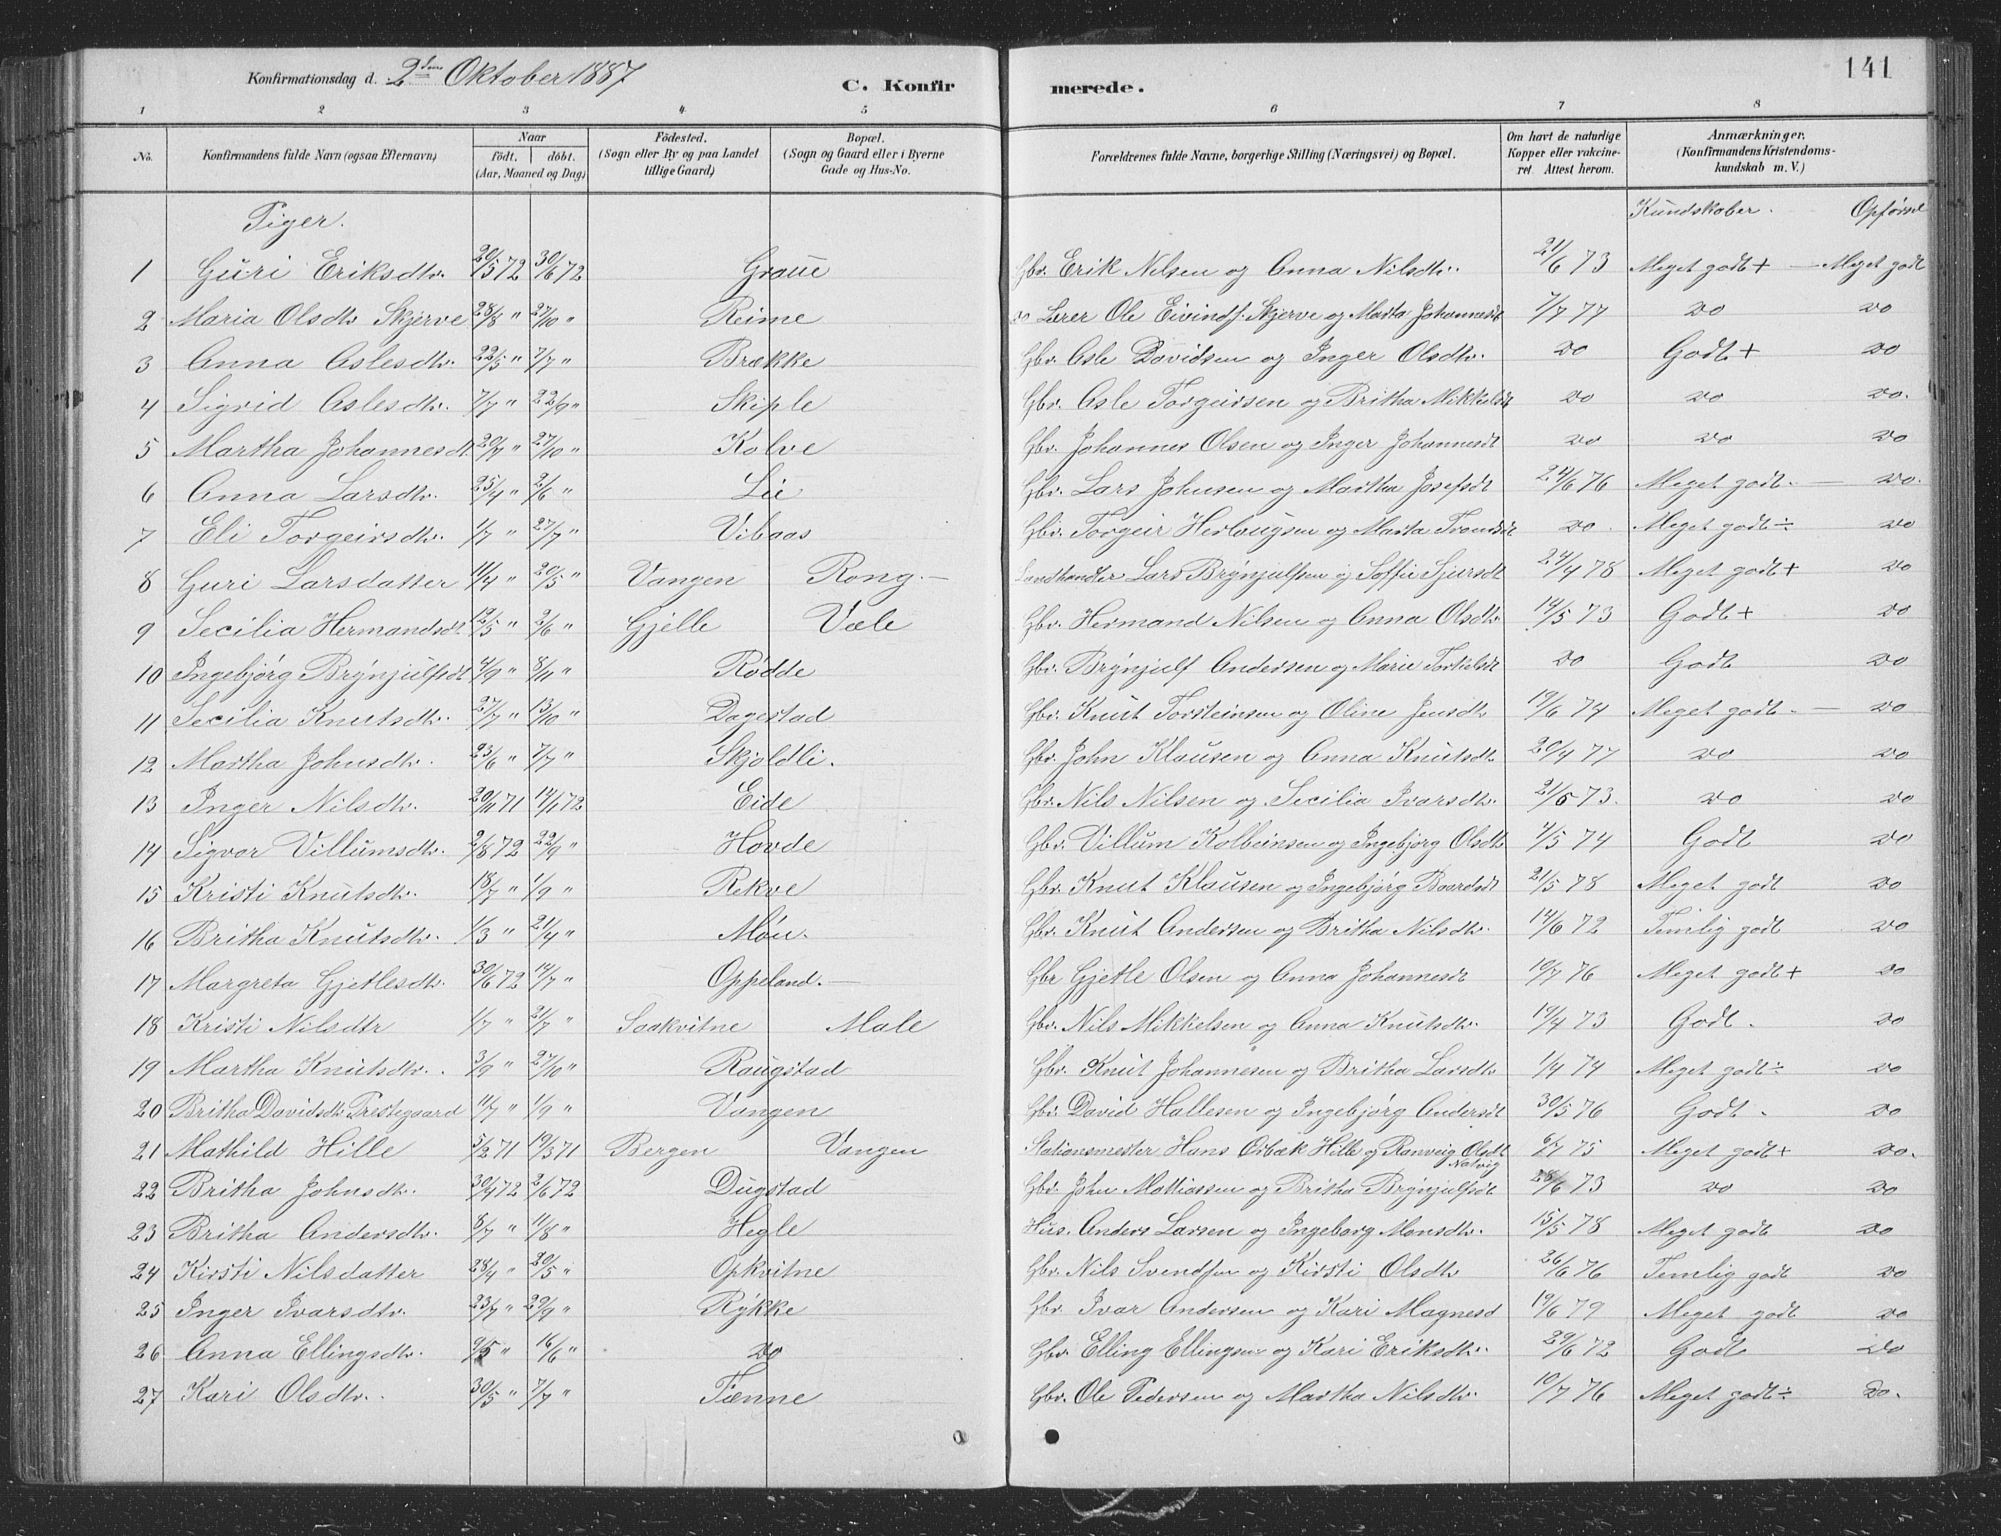 Konfirmationsdag d. 2den Oktober 1887
C. Konfir merede. 141
1 2 3 4 5 6 7 8
No. Konfirmandens fulde Navn (ogsaa Efternavn) Naar födt. döbt. (Aar, Maaned og Dag) Födested. (Sogn eller By og paa Landet tillige Gaard) Bopæl. (Sogn og Gaard eller i Byerne Gade og Hus-No. Forældrenes fulde Navne, borgerlige Stilling (Næringsvei) og Bopæl. Om havt de naturlige Kopper eller vakcineret. Attest herom. Anmærkninger. (Konfirmandens Kristendomskundskab m. V.)
Piger. Kundskaber. Opførsel
1 Guri Eriksdtr. 20/5 72 30/6 72 Graue Gbr. Erik Nilsen og Anna Nilsdtr. 21/6 73 Meget godt + — Meget godt
2 Maria Olsdtr Skjerve 23/8 " 27/10 " Reime do Lærer Ole Eivinds. Skjerve og Marta Johannesdt 7/7 77 do do
3 Anna Aslesdtr. 22/5 " 7/7 " Brække Gbr. Asle Davidsen og Inger Olsdtr. do Godt + do
4 Sigrid Aslesdtr. 7/7 " 22/9 " Skiple Gbr. Asle Torgeirsen og Britha Mikkelsdt do do do.
5 Martha Johannesdt 20/7 " 27/10 " Kolve Gbr. Johannes Olsen og Inger Johannesdt do do do
6 Anna Larsdtr. 25/4 " 2/6 " Lie Gbr. Lars Johnsen og Martha Josefsdt 24/6 76 Meget godt. — do.
7 Eli Torgeirsdtr. 1/7 " 27/7 " Vibaas Gbr. Torgeir Herlaugsen og Marta Trondsdt do. Meget godt ÷ do
8 Guri Larsdatter 11/4 " 20/5 " Vangen Rong. — Landhandler Lars Brynjulfsen og Soffie Sjursdt 24/4 78 Meget godt + do
9 Secilia Hermandsdt 12/5 " 2/6 " Gjelle Væle Gbr. Hermand Nilsen og Anna Olsdtr. 14/5 73 Godt + do
10 Ingebjørg Brynjulfsdt 4/9 " 8/11 " Rødde Gbr. Brynjulf Andersen og Marie Torkelsdt do Godt do
11 Secilia Knutsdtr. 27/7 " 13/10 " Dagestad Gbr. Knut Torsteinsen og Oline Jensdtr 19/6 74 Meget godt. — do
12 Martha Johnsdtr. 23/6 " 7/7 " Skjoldli. Gbr. John Klausen og Anna Knutsdtr 20/4 77 do do
13 Inger Nilsdtr. 20/11 71 14/1 72 Eide Gbr. Nils Nilsen og Secilia Ivarsdtr. 21/5 73. do do
14 Sigvor Villumsdtr. 2/8 72 22/9 " Hovde Gbr. Villum Kolbeinsen og Ingebjørg Olsdtr 4/5 74 Godt do
15 Kristi Knutsdtr. 18/7 " 1/9 " Rekve Gbr. Knut Klausen og Ingebjørg Baardsdt 21/5 78 Meget godt do
16 Britha Knutsdtr. 1/3 " 21/4 " Møn. Gbr. Knut Andersen og Britha Nilsdtr. 14/6 72 Temlig godt do
17 Margreta Gjetlesdtr. 30/6 72 14/7 " Oppeland. — Gbr Gjetle Olsen og Anna Johannesdt 10/7 76 Meget godt + do
18 Kristi Nilsdtr 1/7 " 21/7 " Saakvitne Male Gbr. Nils Mikkelsen og Anna Knutsdtr. 19/4 73 Godt. do
19 Martha Knutsdtr. 3/9 " 27/10 " Raugstad Gbr. Knut Johannesen og Britha Larsdtr 1/4 74 Meget godt ÷ do
20 Britha Davidsdtr. Prestegaard 11/7 " 1/9 " Vangen Gbr. David Hallesen og Ingebjørg Andersdt 30/5 76 Godt. do
21 Mathild Hille 5/2 71 19/3 71 Bergen Vangen Stationsmester Hans Orbæk Hille og Ranveig Olsdt Natvig 6/7 75 Meget godt + do.
22 Britha Johnsdtr. 30/4 72 2/6 72 Dugstad Gbr. John Mattiassen og Britha Brynjulfsdt 28/6 73 do do
23 Britha Andersdtr. 8/7 " 11/8 " Hegle Hus. Anders Larsen og Ingeborg Monsdtr. 15/5 78 Meget godt do
24 Kirsti Nilsdatter 28/4 " 20/5 " Opkvitne Gbr. Nils Svendsen og Kirsti Olsdtr 26/6 76 Temlig godt do
25 Inger Ivarsdtr. 23/7 " 29/9 " Rykke Gbr. Ivar Andersen og Kari Magnesd 19/6 79 Meget godt do
26 Anna Ellingsdtr. 9/5 " 16/6 " do Gbr. Elling Ellingsen og Kari Eriksdtr. 29/6 72 Godt do
27 Kari Olsdtr. 30/5 " 7/7 " Tænne Gbr. Ole Pedersen og Martha Nilsdtr. 10/7 76 Meget godt ÷ do.